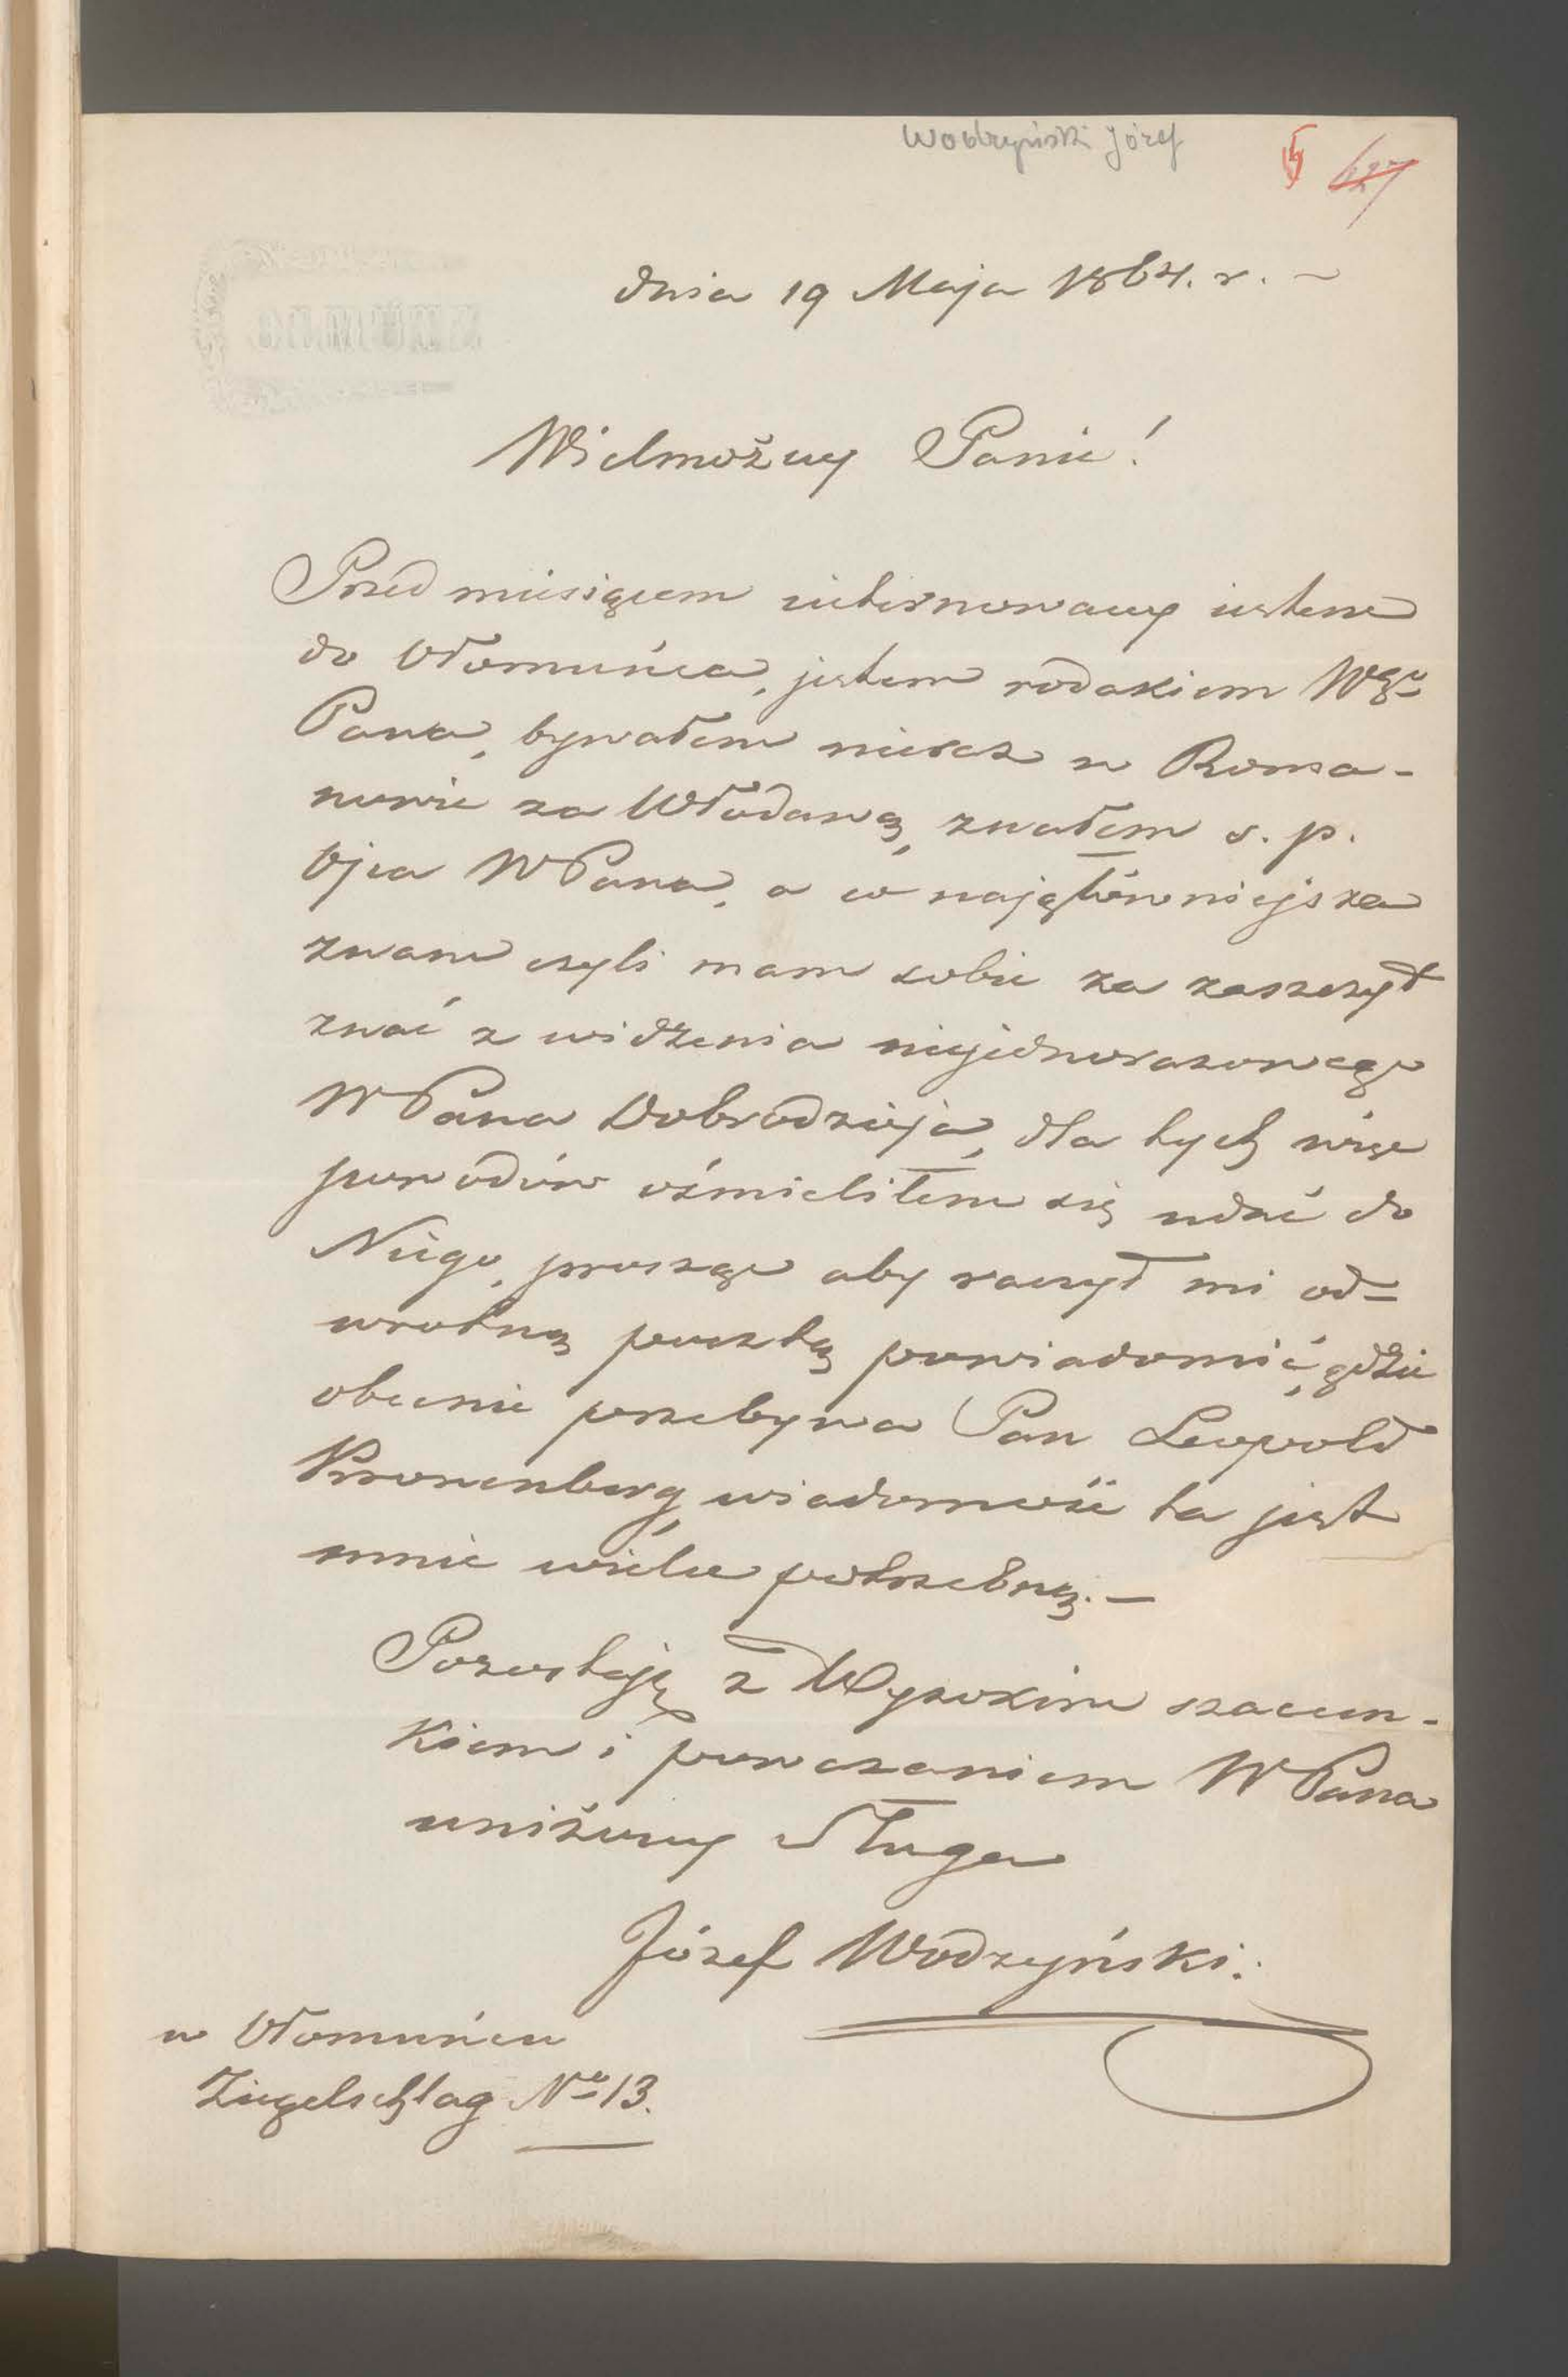 Wodzyński Józef
5 627
dnia 19 Maja 1864. r. ~
Wielmożny Panie!
Przed miesiącem internowany jestem
do Ołomuńca, jestem rodakiem Wgo
Pana, bywałem nieraz w Roma-
nowie za Włodawą, znałem s. p.
Ojca WPana, a co najgłówniejsza
znam czyli mam sobie za zaszczyt
znać z widzenia niejednorazowego
WPana Dobrodzieja, dla tych więc
powodów ośmieliłem się udać do
Niego, prosząc aby raczył mi od=
wrotną pocztą powiadomić, gdzie
obecnie przebywa Pan Leopold
Kronenberg, wiadomość ta jest
mnie wielce potrzebną. —
Pozostaję z Wysokim szacun-
kiem i poważaniem WPana
uniżony Sługa
Józef Wodzyński.
w Ołomuńcu
Ziegelschlag No 13.